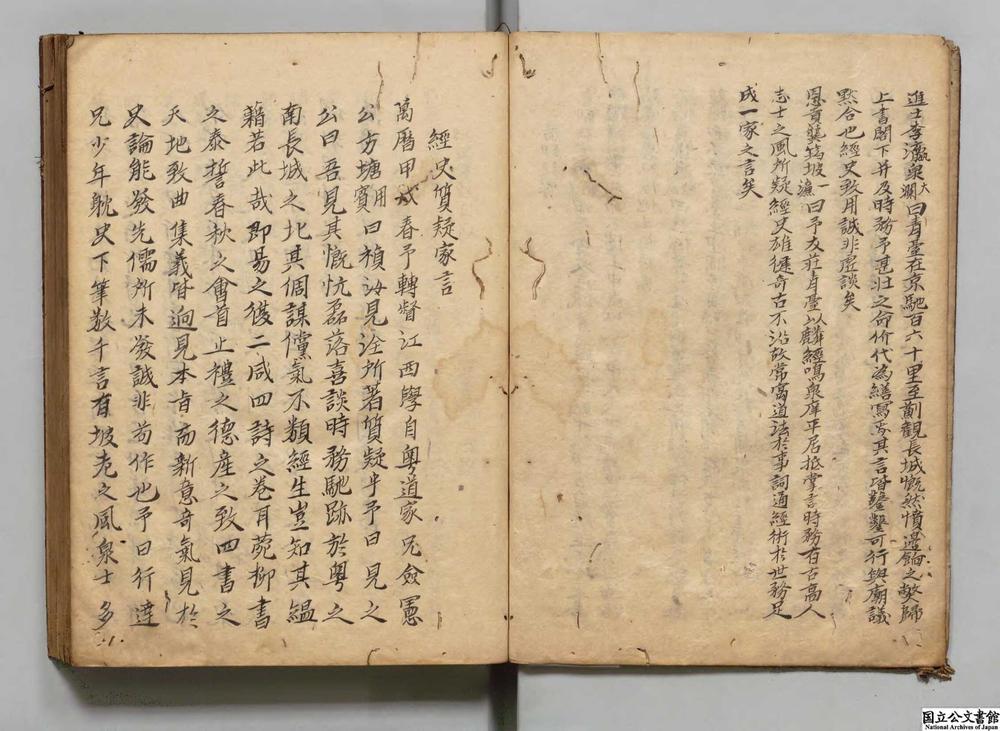 進士李瀛泉大瀾曰青臺在京馳百六十里至薊觀長城慨然憤邊餉之敝歸
上書閣下并及時務予甚壯之命价代為繕寫其言皆鑿鑿可行與廟議
黙合也經史致用誠非虛談矣
恩貢龔篤坡一濂曰予友莊青臺以麟經鳴泉庠平居抵掌言時務有古高人
志士之風所疑經史雄徤奇古不沿故常寓道法於事詞通經術於世務足
成一家之言矣
經史質疑家言
萬曆甲戌春予轉督江西學自粵道家兄僉憲
公方塘賓用曰禎汝見洤所著質疑乎予曰見之
公曰吾見其慨忼磊落喜談時務馳跡於粵之
南長城之北其倜謀儻氣不類經生豈知其緼
藉若此哉即易之復二咸四詩之卷耳菀柳書
之泰誓春秋之會首止禮之德產之致四書之
天地致曲集義皆逈見本旨而新意奇氣見於
史論能發先儒所未發誠非苟作也予曰行達
兄少年躭史下筆數千言有坡老之風泉士多
国立公文書館
National Archives of Japan